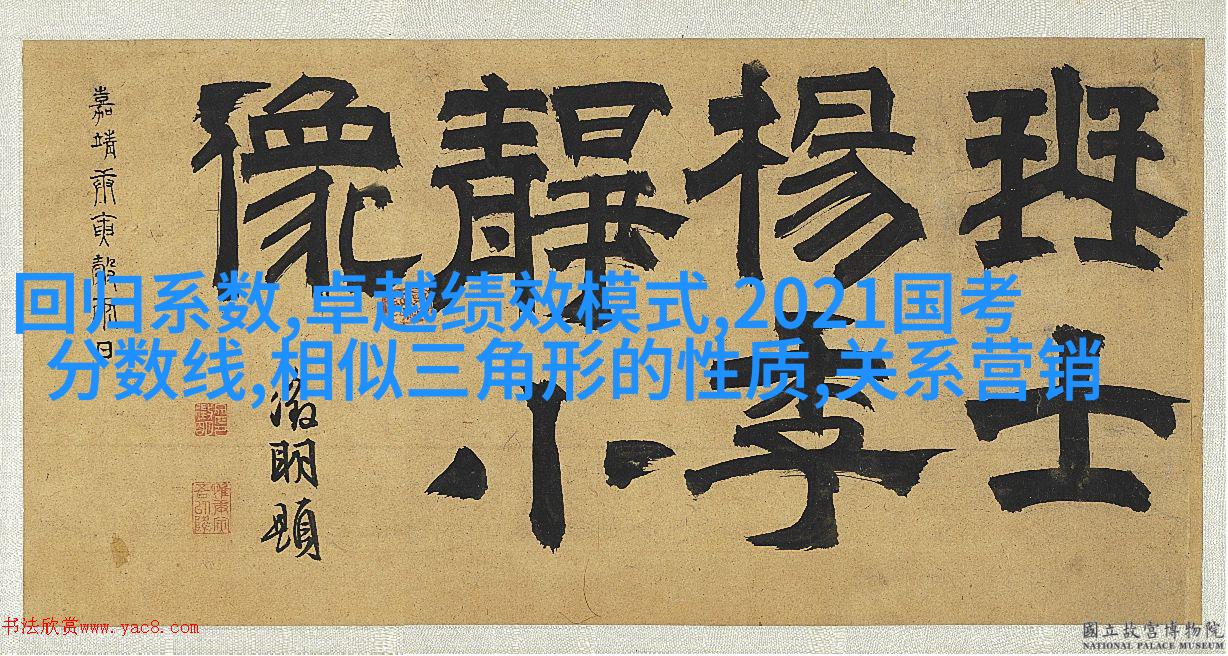 琴士
楊季
靜小
像
嘉靖庚寅穀雨日
徵明題
回归系数,卓越绩效模式,2021国考
分数线,相似三角形的性质,关系营销
书法欣赏www.yac8.com
國立故宮博物院
NATIONAL PALACE MUSEUM